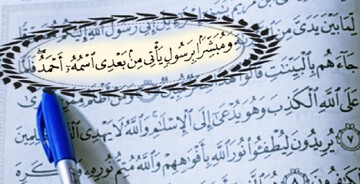 لِّمَا بَيْنَ يَدَىَّ مِنَ
وَمُبَشِّرًۢا بِرَسُولٍ يَأْتِى مِنۢ بَعْدِى ٱسْمُهُۥٓ أَحْمَدُ ۖ
جَآءَهُم بِٱلْبَيِّنَٰتِ قَالُوا۟
عَلَى ٱللَّهِ ٱلْكَذِبَ وَهُوَ يُدْعَىٰٓ إِلَى ٱلْإِسْلَٰمِ وَٱللَّهُ لَا يَهْدِى
يُرِيدُونَ لِيُطْفِـُٔوا۟ نُورَ ٱللَّهِ بِأَفْوَٰهِهِمْ وَٱللَّهُ مُتِمُّ نُورِهِۦ وَلَوْ كَرِهَ